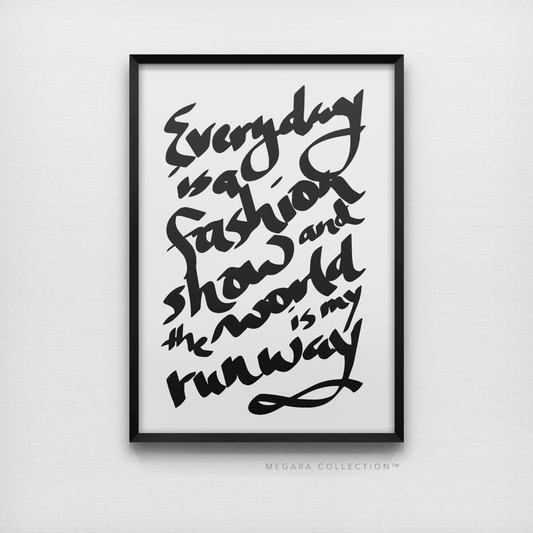 Everyday
is a
fashion
show and
the world
is my
runway
MEGARA COLLECTION™